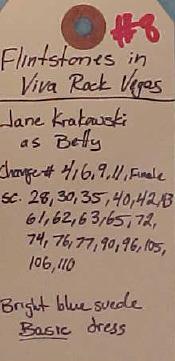 #8
Flintstones in
Viva Rock Vegas
Jane Krakowski
as Betty
Change# 4, 6, 9, 11, Finale
SC. 28, 30, 35, 40, 42, 43
61, 62, 63, 65, 72,
74, 76, 77, 90, 96, 105,
106, 110
Bright blue suede
Basic dress